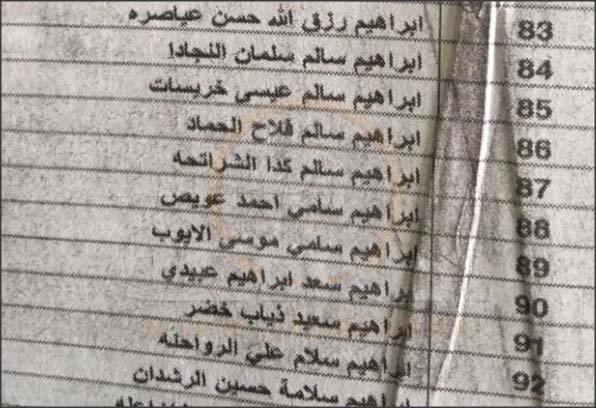 83 ابراهيم رزق الله حسن عياصره
84 ابراهيم سالم سلمان النجادا
85 ابراهيم سالم عيسى خريسات
86 ابراهيم سالم فلاح الحماد
87 ابراهيم سالم كدا الشرائحه
88 ابراهيم سامي احمد عويص
89 ابراهيم سامي موسى الايوب
90 ابراهيم سعد ابراهيم عبيدي
91 ابراهيم سعيد ذياب خضر
92 ابراهيم سلام علي الرواحنه
ابراهيم سلامة حسين الرشدان